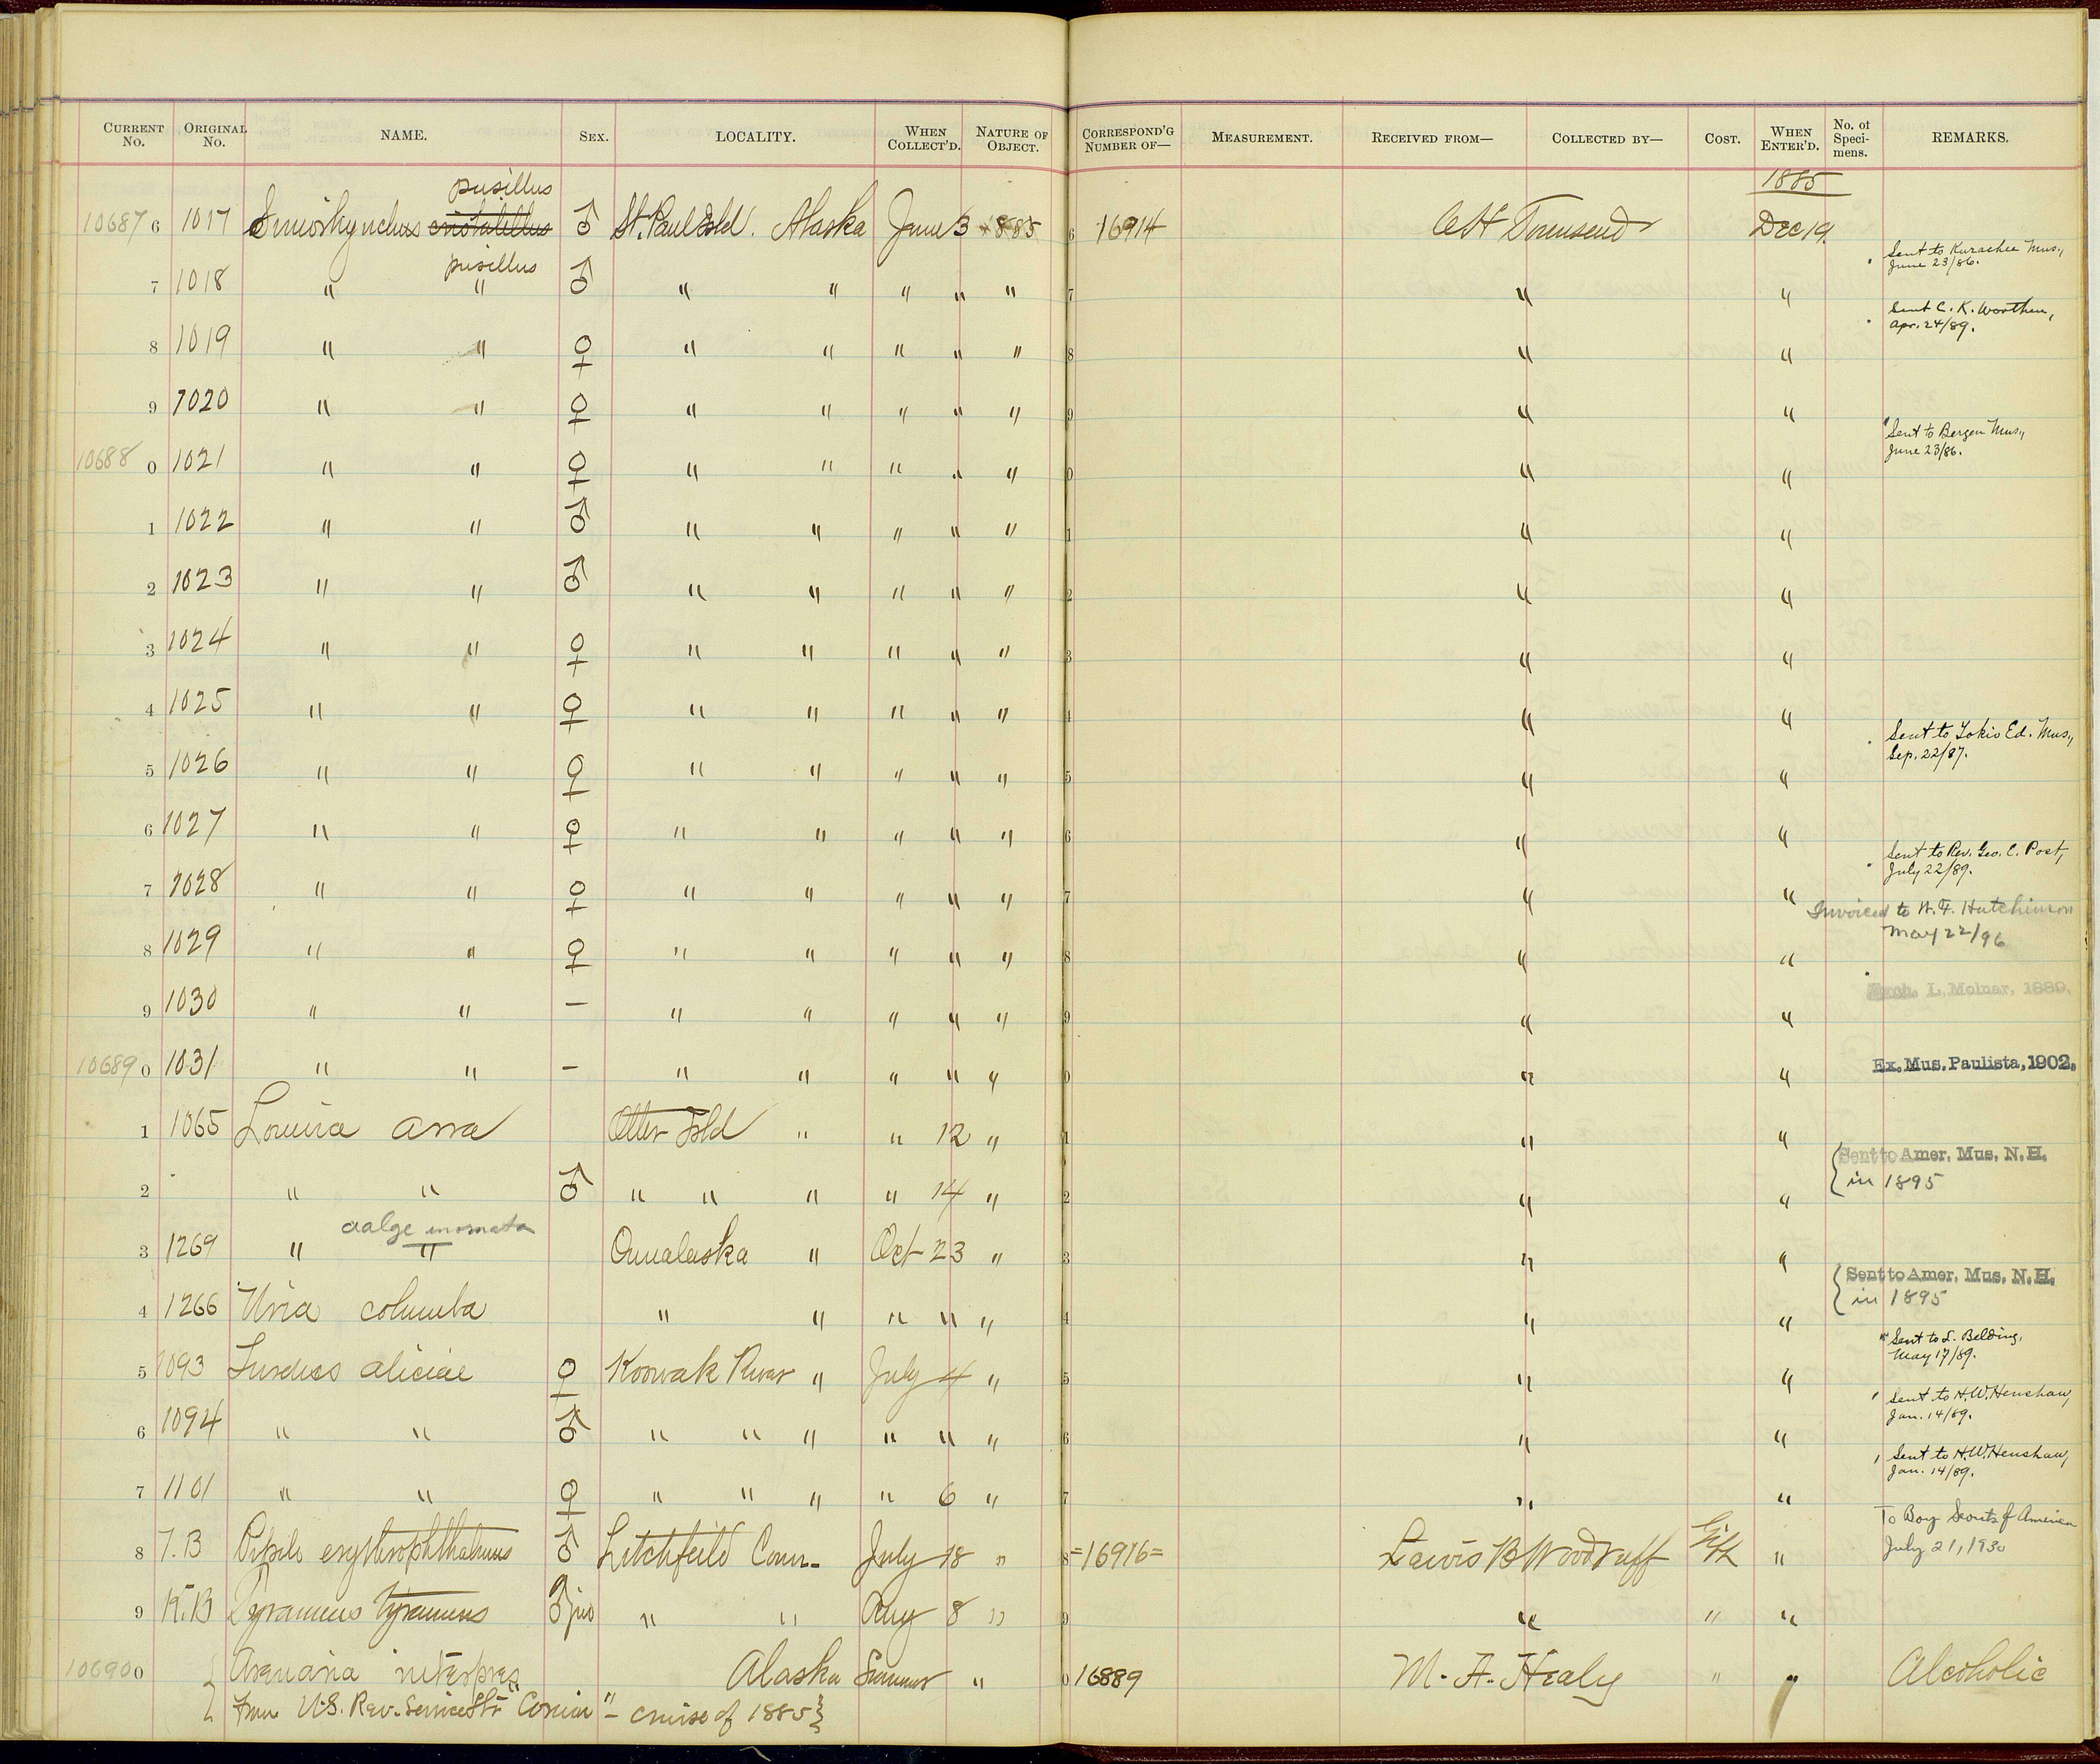 CURRENT No. ORIGINAL No. NAME. SEX. LOCALITY. WHEN COLLECT'D. NATURE OF OBJECT. CORRESPOND'G NUMBER OF— MEASUREMENT. RECEIVED FROM— COLLECTED BY— COST. WHEN ENTER'D. No. of Specimens. REMARKS.
pusillus
1885
106876 1017 Simorhynchus cristatellus ♂ St. Paul Isld. Alaska June 3 1885 6 16914 CH Townsend Dec 19.
pusillus
Sent to Kurachee Mus., June 23/86.
7 1018 " " ♂ " " " " " 7 " "
Sent C. K. Worthen, Apr. 24/89.
8 1019 " " ♀ " " " " " 8 " "
9 1020 " " ♀ " " " " " 9 " "
Sent to Bergen Mus., June 23/86.
10688 0 1021 " " ♀ " " " " " 0 " "
1 1022 " " ♂ " " " " " 1 " "
2 1023 " " ♂ " " " " " 2 " "
3 1024 " " ♀ " " " " " 3 " "
4 1025 " " ♀ " " " " " 4 " "
Sent to Tokio Ed. Mus., Sep. 22/87.
5 1026 " " ♀ " " " " " 5 " "
6 1027 " " ♀ " " " " " 6 " "
Sent to Rev. Geo. C. Post, July 22/89.
7 1028 " " ♀ " " " " " 7 " "
Invoiced to W. F. Hutchinson May 22/96
8 1029 " " ♀ " " " " " 8 " "
9 1030 " " — " " " " " 9 " " Exch. L. Molnar, 1889.
10689 0 1031 " " — " " " " " 0 " " Ex. Mus. Paulista, 1902.
1 1065 Lomvia arra Otter Isld " " 12 " 1 " "
Sent to Amer. Mus. N. H. in 1895
2 " " ♂ " " " " 14 " 2 " "
aalge inornata
3 1269 " " Ounalaska " Oct 23 " 3 " "
Sent to Amer. Mus. N. H. in 1895
4 1266 Uria columba " " " " " 4 " "
Sent to L. Belding, May 17/89.
5 1093 Turdus aliciae ♀ Koowak River " July 4 " 5 " "
Sent to H.W. Henshaw, Jan. 14/89.
6 1094 " " ♂ " " " " " " 6 " "
Sent to H.W. Henshaw, Jan. 14/89.
7 1101 " " ♀ " " " " 6 " 7 " "
To Boy Scouts of America July 21, 1930
8 7.B Pipilo erythrophthalmus ♂ Litchfeild Conn. July 18 " 8 =16916= Lewis B Woodruff Gift "
9 K.B Tyrannus tyrannus ♂ juv " " Aug 8 " 9 " " "
10690 0 Arenaria interpres Alaska Summer " 0 16889 M. A. Healy " " Alcoholic
{ from U.S. Rev. Service Str "Corwin" — cruise of 1885 }